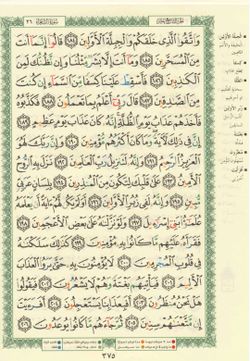 سُورَةُ الشُّعَرَاءِ ٢٦
وَٱتَّقُوا۟ ٱلَّذِى خَلَقَكُمْ وَٱلْجِبِلَّةَ ٱلْأَوَّلِينَ ١٨٤ قَالُوٓا۟ إِنَّمَآ أَنتَ
مِنَ ٱلْمُسَحَّرِينَ ١٨٥ وَمَآ أَنتَ إِلَّا بَشَرٌ مِّثْلُنَا وَإِن نَّظُنُّكَ لَمِنَ
ٱلْكَـٰذِبِينَ ١٨٦ فَأَسْقِطْ عَلَيْنَا كِسَفًا مِّنَ ٱلسَّمَآءِ إِن كُنتَ
مِنَ ٱلصَّـٰدِقِينَ ١٨٧ قَالَ رَبِّىٓ أَعْلَمُ بِمَا تَعْمَلُونَ ١٨٨ فَكَذَّبُوهُ
فَأَخَذَهُمْ عَذَابُ يَوْمِ ٱلظُّلَّةِ إِنَّهُۥ كَانَ عَذَابَ يَوْمٍ عَظِيمٍ ١٨٩
إِنَّ فِى ذَٰلِكَ لَـَٔايَةً وَمَا كَانَ أَكْثَرُهُم مُّؤْمِنِينَ ١٩٠ وَإِنَّ رَبَّكَ لَهُوَ
ٱلْعَزِيزُ ٱلرَّحِيمُ ١٩١ وَإِنَّهُۥ لَتَنزِيلُ رَبِّ ٱلْعَـٰلَمِينَ ١٩٢ نَزَلَ بِهِ ٱلرُّوحُ
ٱلْأَمِينُ ١٩٣ عَلَىٰ قَلْبِكَ لِتَكُونَ مِنَ ٱلْمُنذِرِينَ ١٩٤ بِلِسَانٍ عَرَبِىٍّ
مُّبِينٍ ١٩٥ وَإِنَّهُۥ لَفِى زُبُرِ ٱلْأَوَّلِينَ ١٩٦ أَوَلَمْ يَكُن لَّهُمْ ءَايَةً أَن يَعْلَمَهُۥ
عُلَمَـٰٓؤُا۟ بَنِىٓ إِسْرَٰٓءِيلَ ١٩٧ وَلَوْ نَزَّلْنَـٰهُ عَلَىٰ بَعْضِ ٱلْأَعْجَمِينَ ١٩٨
فَقَرَأَهُۥ عَلَيْهِم مَّا كَانُوا۟ بِهِۦ مُؤْمِنِينَ ١٩٩ كَذَٰلِكَ سَلَكْنَـٰهُ
فِى قُلُوبِ ٱلْمُجْرِمِينَ ٢٠٠ لَا يُؤْمِنُونَ بِهِۦ حَتَّىٰ يَرَوُا۟ ٱلْعَذَابَ
ٱلْأَلِيمَ ٢٠١ فَيَأْتِيَهُم بَغْتَةً وَهُمْ لَا يَشْعُرُونَ ٢٠٢ فَيَقُولُوا۟
هَلْ نَحْنُ مُنظَرُونَ ٢٠٣ أَفَبِعَذَابِنَا يَسْتَعْجِلُونَ ٢٠٤ أَفَرَءَيْتَ
إِن مَّتَّعْنَـٰهُمْ سِنِينَ ٢٠٥ ثُمَّ جَآءَهُم مَّا كَانُوا۟ يُوعَدُونَ ٢٠٦
٣٧٥